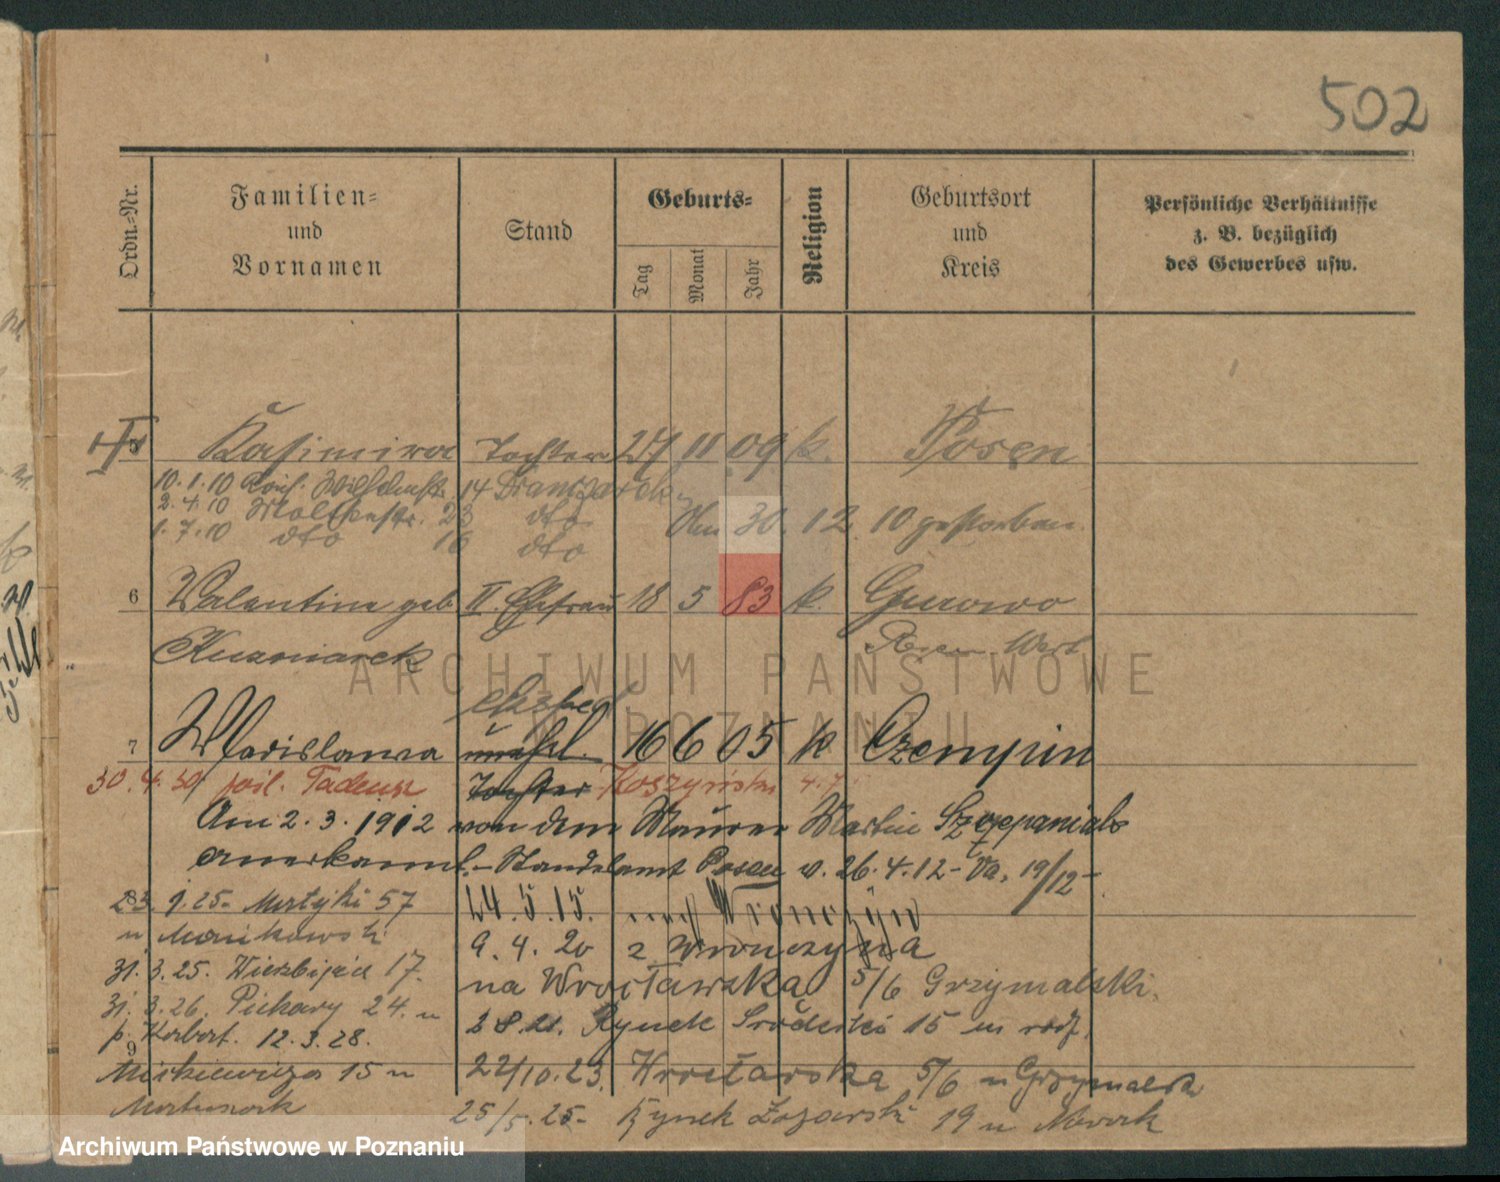 502
Ordn.-Nr.
Familien-
und
Vornamen
Stand
Geburts-
Tag
Monat
Jahr
Religion
Geburtsort
und
Kreis
Persönliche Verhältnisse
z. B. bezüglich
des Gewerbes usw.
Kasimira Tochter 27 11 09 k. Posen
10. 1. 10 14
2. 4. 10 23 dto 30. 12. 10 gestorben
1. 7. 10 dto 16 dto
6 Valentina geb II. Ehefrau 18 5 83 k. Gurowo
Kusniarek Posen West
7 Wladislawa unehl. 16 6 05 k Czempin
30. 4. 30 Tadeusz Tochter Koszyński
Am 2. 3. 1912 von dem Maurer Martin Szczepaniak
anerkannt. - Standesamt Posen v. 26. 4. 12 - Va, 19/12 -
23. 9. 25 - 57 24. 5. 15. nach Wronczyn
u Mańkowski 9. 4. 20 z Wronczyna
31. 3. 25. 17. na Wrocławska 5/6 Grzymalski.
31. 3. 26. Piekary 24. u 28. 21. Rynek Śródecki 15 u rodz.
p. Korbort. 12. 3. 28.
9
Mickiewicza 15 u 22/10. 23. Wrocławska 5/6 u Grzymalski
25/5. 25 - Rynek Łazarski 19 u Nowak
ARCHIWUM PAŃSTWOWE
W POZNANIU
Archiwum Państwowe w Poznaniu